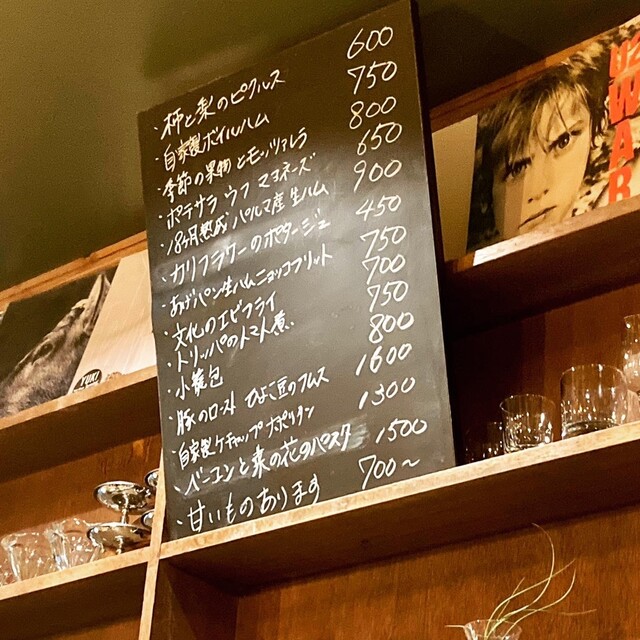 ・柿と梨のピクルス 600
・自家製ボイルハム 750
・季節の果物とモッツァレラ 800
・ポテサラ ウフマヨネーズ 650
・18ヶ月熟成 パルマ産生ハム 900
・カリフラワーのポタージュ 450
・あげパン生ハムニョッコフリット 750
・文化のエビフライ 700
・トリッパのトマト煮 750
・小籠包 800
・豚のロースト ひよこ豆のフムス 1600
・自家製ケチャップナポリタン 1300
・ベーコンと菜の花のパスタ 1500
・甘いものあります 700〜
U2
WAR
YUKI